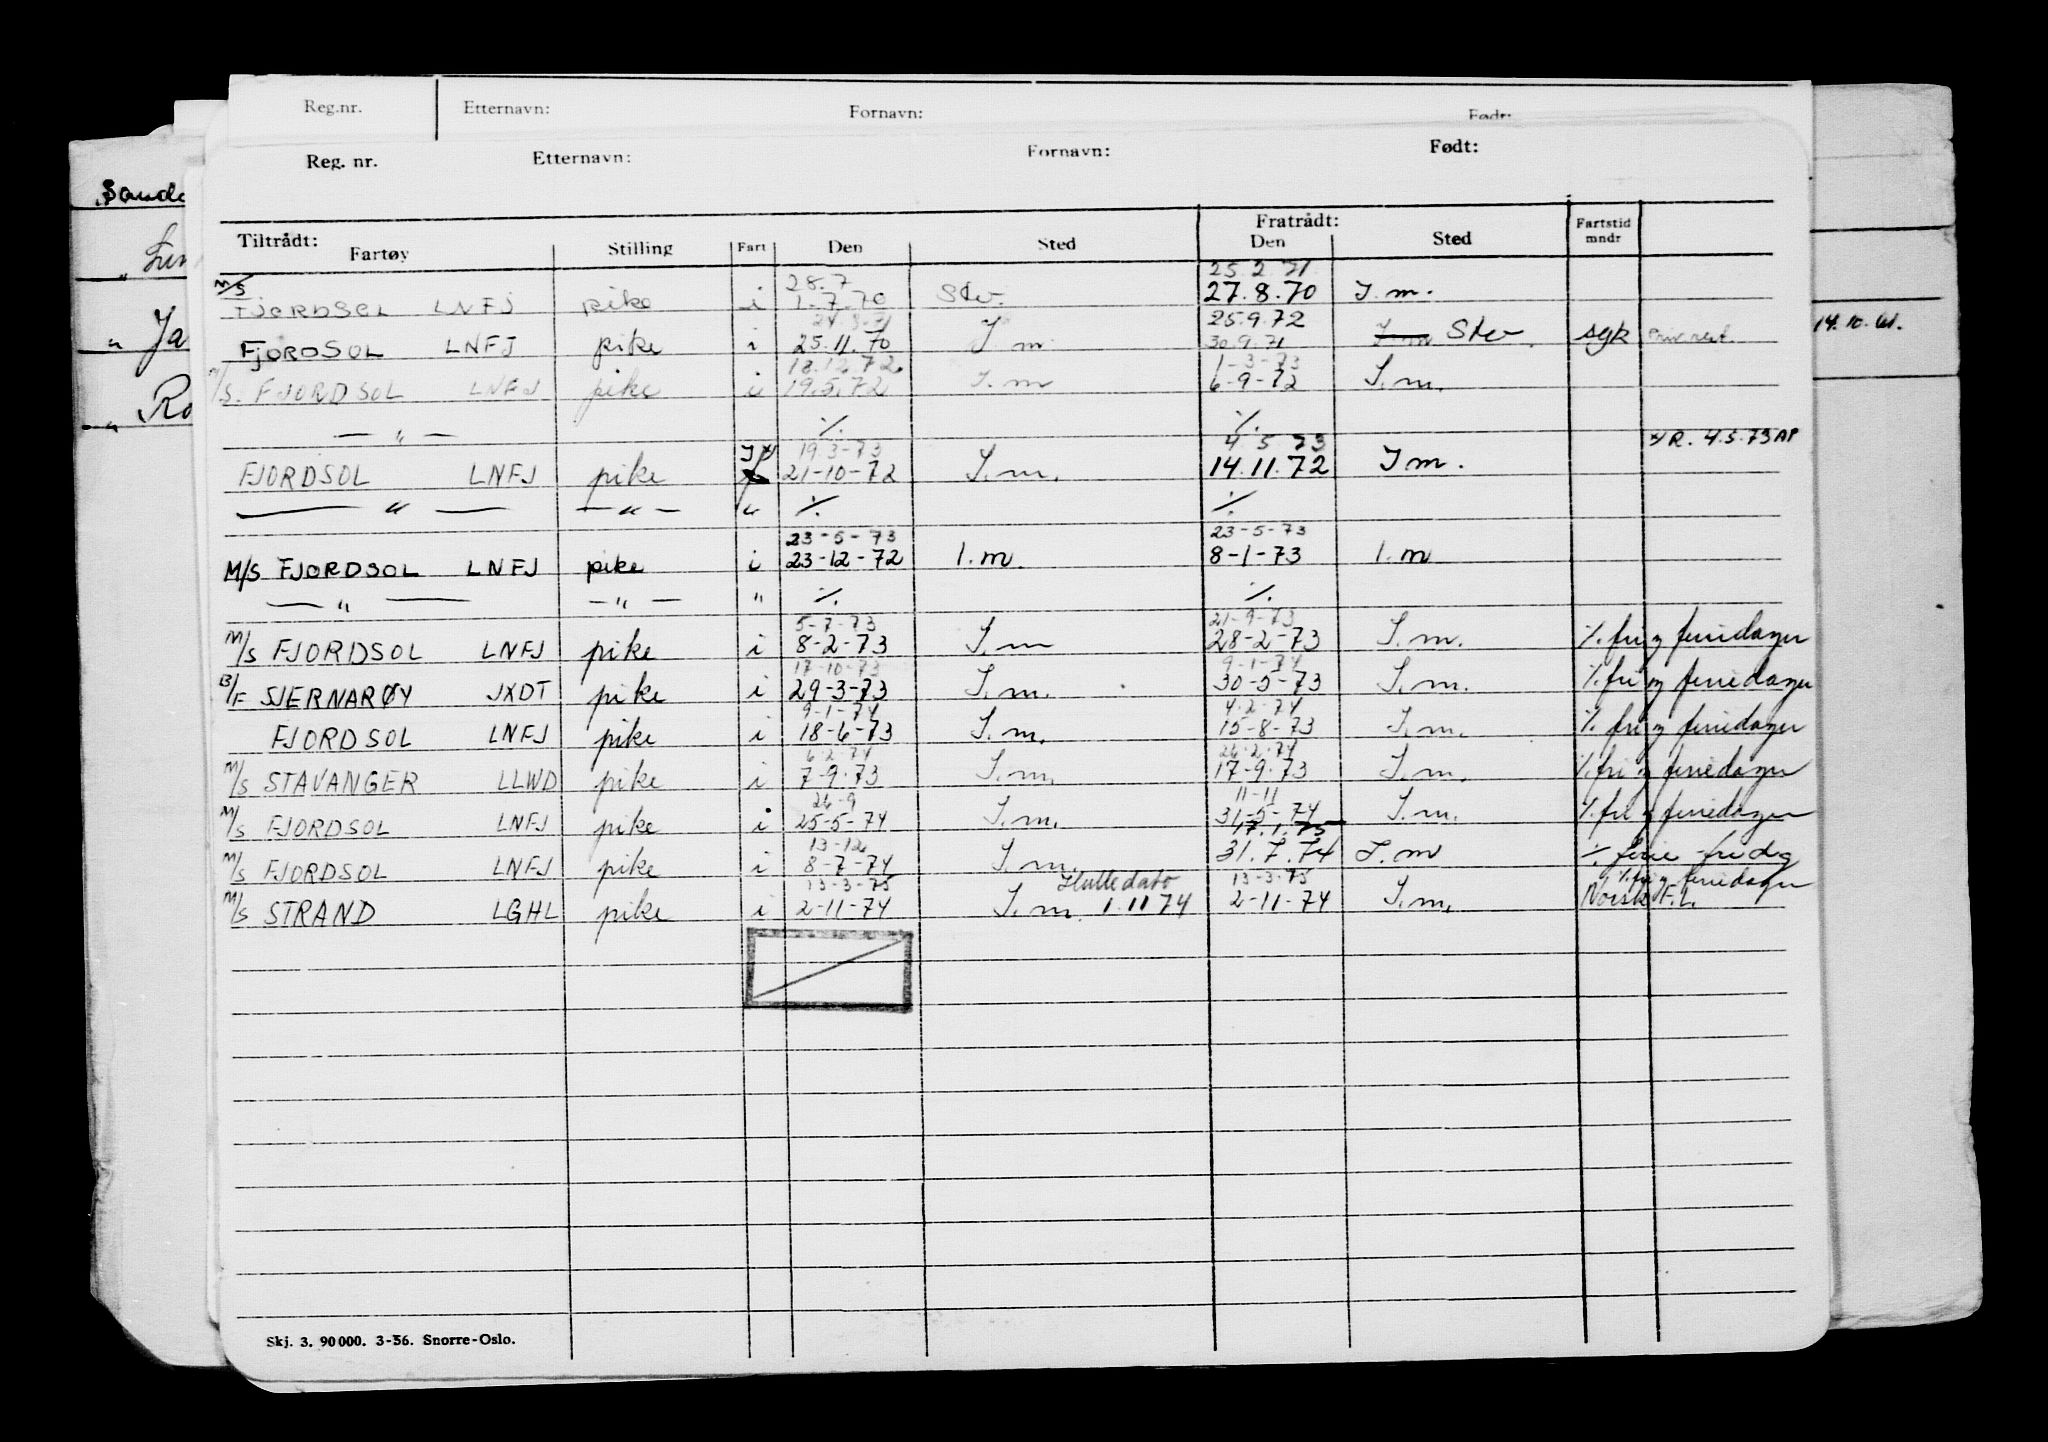 Reg.nr. Etternavn: Fornavn: Født:
Reg. nr. Etternavn: Fornavn: Født:
Tiltrådt: Fratrådt:
Fartøy Stilling Fart Den Sted Den Sted Fartstid mndr
28.7 25.2.71
M/S FJORDSOL LNFJ pike i 1-7.70 Stv. 27.8.70 I.m.
25.9.72
FJORDSOL LNFJ pike i 25.11.70 I m 30.9.71 I m Stv syk
18.12.72 1-3-73
M/S. FJORDSOL LNFJ pike i 19.5.72 I.m 6-9-72 I.m.
— " — ·/. ·/.
19.3-73 4 5 73 4.5.73 AP
FJORDSOL LNFJ pike 21-10-72 I.m. 14.11.72 I m.
— " — — " — " ·/. ·/.
23-5-73 23-5-73
M/S FJORDSOL LNFJ pike i 23-12-72 I.m. 8-1-73 I.m
— " — — " — " ·/. ·/.
5-7-73 21-9-73
M/S FJORDSOL LNFJ pike i 8-2-73 I.m 28-2-73 I.m. ·/. fri og feriedager
17-10-73 9-1-74
B/F SJERNARØY JXDT pike i 29-3-73 I.m. 30-5-73 I.m. ·/. fri og feriedager
9-1-74 4-2-74
FJORDSOL LNFJ pike i 18-6-73 I.m. 15-8-73 I.m. ·/. fri og feriedager
6-2-74 26-2-74
M/S STAVANGER LLWD pike i 7-9-73 I.m. 17-9-73 I.m. ·/. fri og feriedager
26-9 11-11
M/S FJORDSOL LNFJ pike i 25-5-74 I.m. 31-5-74 I.m. ·/. fri og feriedager
13-12 17.1.75
M/S FJORDSOL LNFJ pike i 8-7-74 I.m. 31.7.74 I.m ·/. ferie fridag
13-3-75 Hulledato 13-3-75 ·/. fri og feriedager
M/S STRAND LGHL pike i 2-11-74 I.m. 1.11 74 2-11-74 I.m. Norsk F.L.
Skj. 3. 90000. 3-56. Snorre-Oslo.
Ja
Ro
14.10.61.